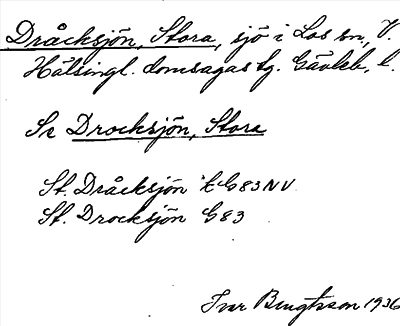 Dråcksjön, Stora, sjö i Los sn, V.
Hälsingl. domsagas tg. Gävleb. l.
Se Drocksjön, Stora
St. Dråcksjön EG83NV
St. Drocksjön G83
Ivar Bengtsson 1936